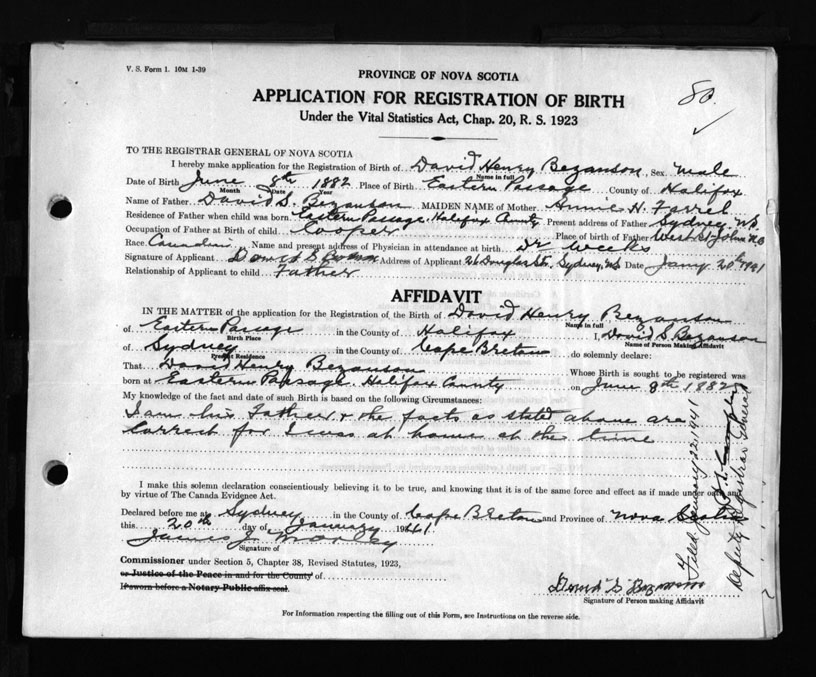 V. S. Form 1. 10M 1-39
80.
PROVINCE OF NOVA SCOTIA
APPLICATION FOR REGISTRATION OF BIRTH
Under the Vital Statistics Act, Chap. 20, R. S. 1923
TO THE REGISTRAR GENERAL OF NOVA SCOTIA
I hereby make application for the Registration of Birth of David Henry Bezanson, Sex Male
Name in full
Date of Birth June 8th 1882 Place of Birth Eastern Passage County of Halifax
Month Date Year
Name of Father David S. Bezanson MAIDEN NAME of Mother Annie H. Farrel
Residence of Father when child was born Eastern Passage, Halifax County Present address of Father Sydney NS
Occupation of Father at Birth of child Cooper Place of Birth of Father West St John NB
Race Canadian Name and present address of Physician in attendance at birth Dr Weeks
Signature of Applicant David S Bezanson Address of Applicant 26 Douglas St, Sydney, NS Date Jany 20th 1941
Relationship of Applicant to child Father
AFFIDAVIT
IN THE MATTER of the application for the Registration of the Birth of David Henry Bezanson
Name in full
of Eastern Passage in the County of Halifax I, David S. Bezanson
Birth Place Name of Person Making Affidavit
of Sydney in the County of Cape Breton do solemnly declare:
Present Residence
That David Henry Bezanson Whose Birth is sought to be registered was
born at Eastern Passage, Halifax County on June 8th 1882
My knowledge of the fact and date of such Birth is based on the following Circumstances:
I am his Father & the facts as stated above are
correct for I was at home at the time
I make this solemn declaration conscientiously believing it to be true, and knowing that it is of the same force and effect as if made under oath and
by virtue of The Canada Evidence Act.
Declared before me at Sydney in the County of Cape Breton and Province of Nova Scotia
this 20th day of January 1941
James J
Signature of
Commissioner under Section 5, Chapter 38, Revised Statutes, 1923,
or Justice of the Peace in and for the County of
If sworn before a Notary Public affix seal.
David S Bezanson
Signature of Person making Affidavit
For Information respecting the filling out of this Form, see Instructions on the reverse side.
Filed January 22, 1941
Deputy Registrar General